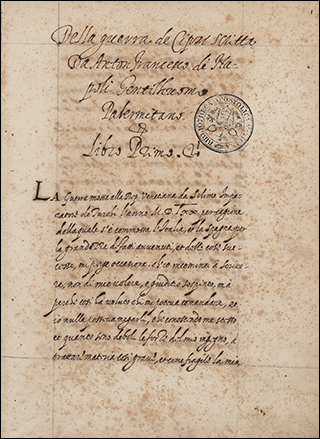 Della guerra de Cipro scritta
Da Anton francesco di Na=
poli Gentilhuomo
Palermitano
Libro Primo.
LA Guerra mossa alla Rep. Venetiana da Selimo Impe=
ratore de Turchi l'anno M.D.Lxx per cagione
della quale s'è commossa l'Italia, et la Spagna per
la grandezza di fatti avvenuti, et delli casi suc=
cessi, mi porge occasione, ch'io incominci à scrive=
re, non di mio volere, a guidato e sospinto, mà
perche così ha voluto chi mi poteva comandare, et
io nulla poteva negarli, che conoscendo me stesso
et quanto sino deboli le forze del mio ingegno, à
trattar materia così grave, et come fragile la mia